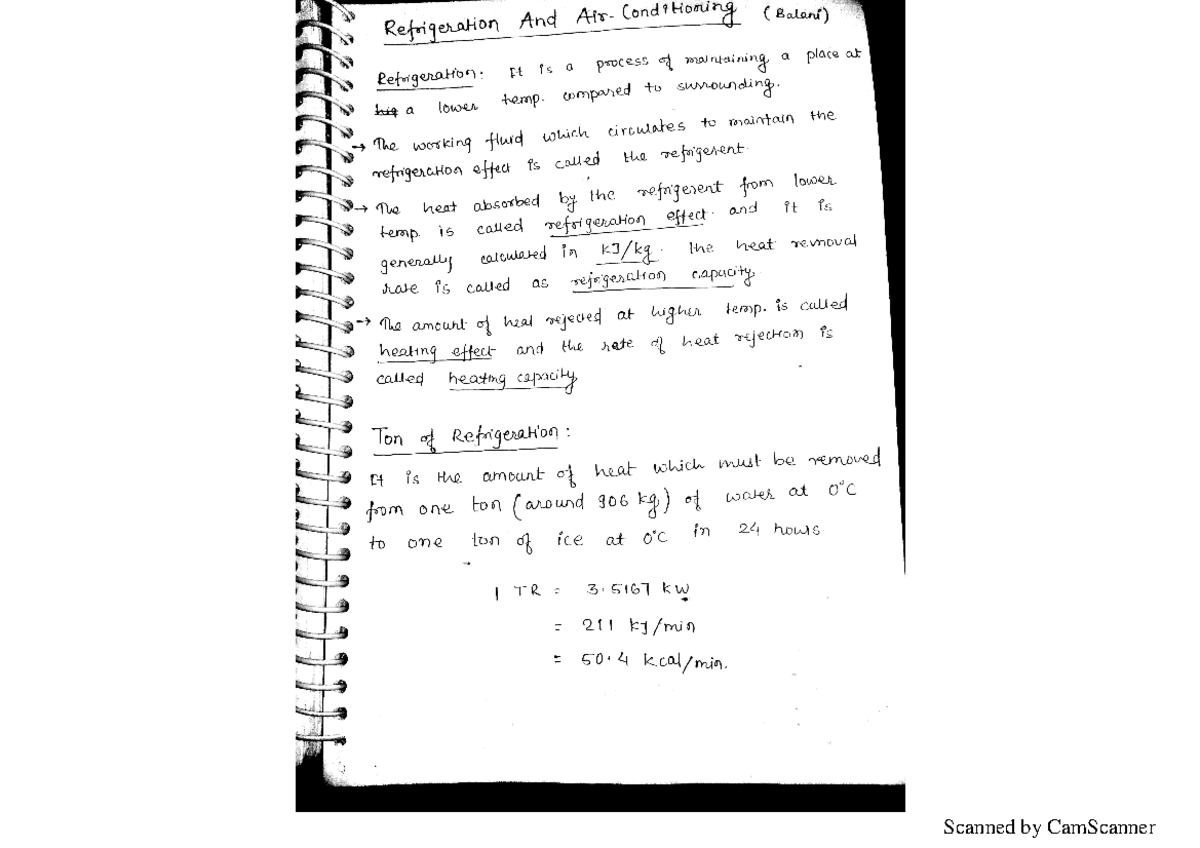 Refrigeration And Air-Conditioning (Balani)
Refrigeration: It is a process of maintaining a place at
a lower temp. compared to surrounding.
→ The working fluid which circulates to maintain the
refrigeration effect is called the refrigerent.
→ The heat absorbed by the refrigerent from lower
temp. is called refrigeration effect and it is
generally calculated in kJ/kg. The heat removal
rate is called as refrigeration capacity.
→ The amount of heat rejected at higher temp. is called
heating effect and the rate of heat rejection is
called heating capacity
Ton of Refrigeration:
It is the amount of heat which must be removed
from one ton (around 906 kg) of water at 0°C
to one ton of ice at 0°C in 24 hours
1 TR = 3.5167 kW
= 211 kJ/min
= 50.4 kcal/min.
Scanned by CamScanner